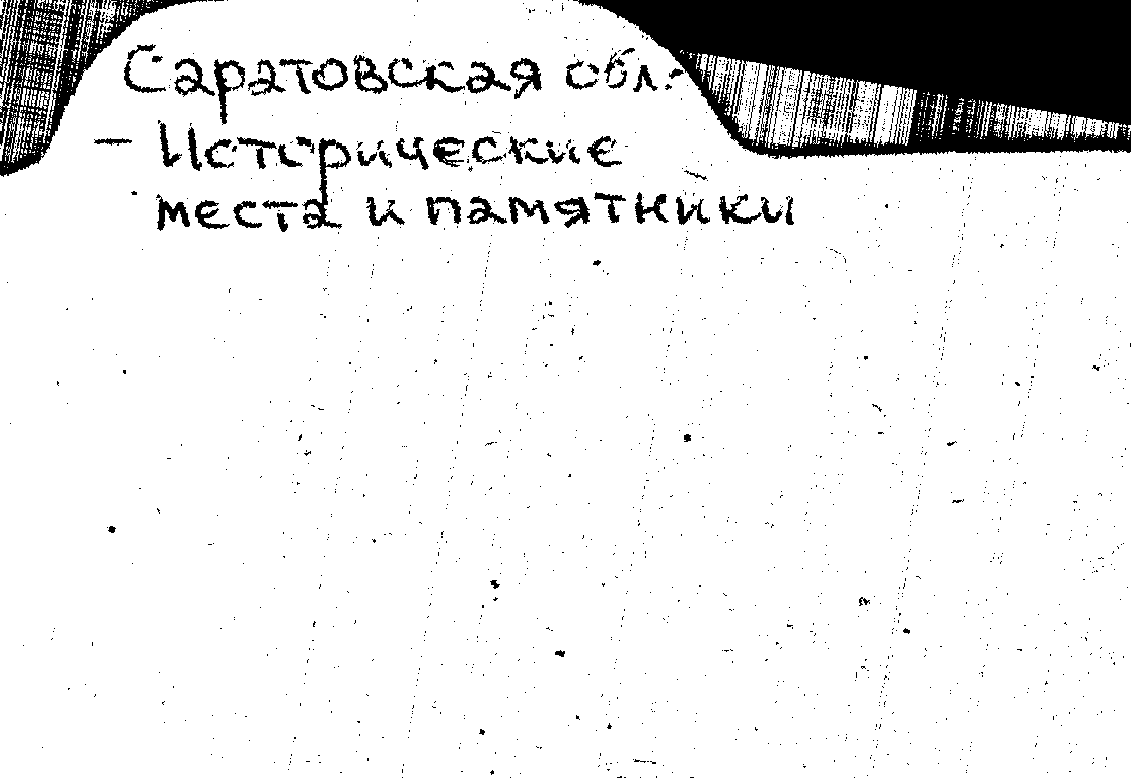 Саратовская обл.
- Исторические
места и памятники